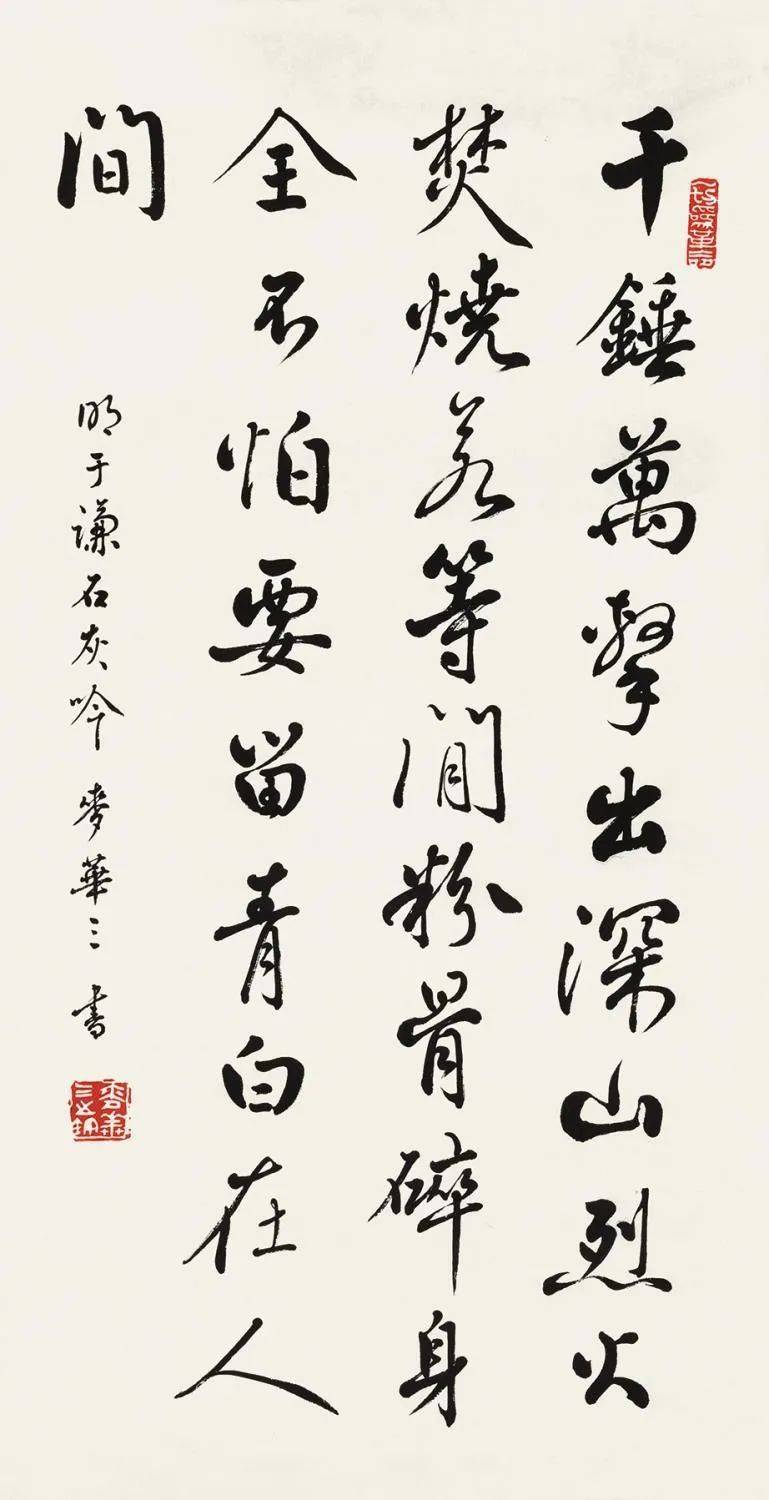 千錘萬擊出深山烈火
焚燒若等閒粉骨碎身
全不怕要留青白在人
間
明于谦石灰吟 麥華三書